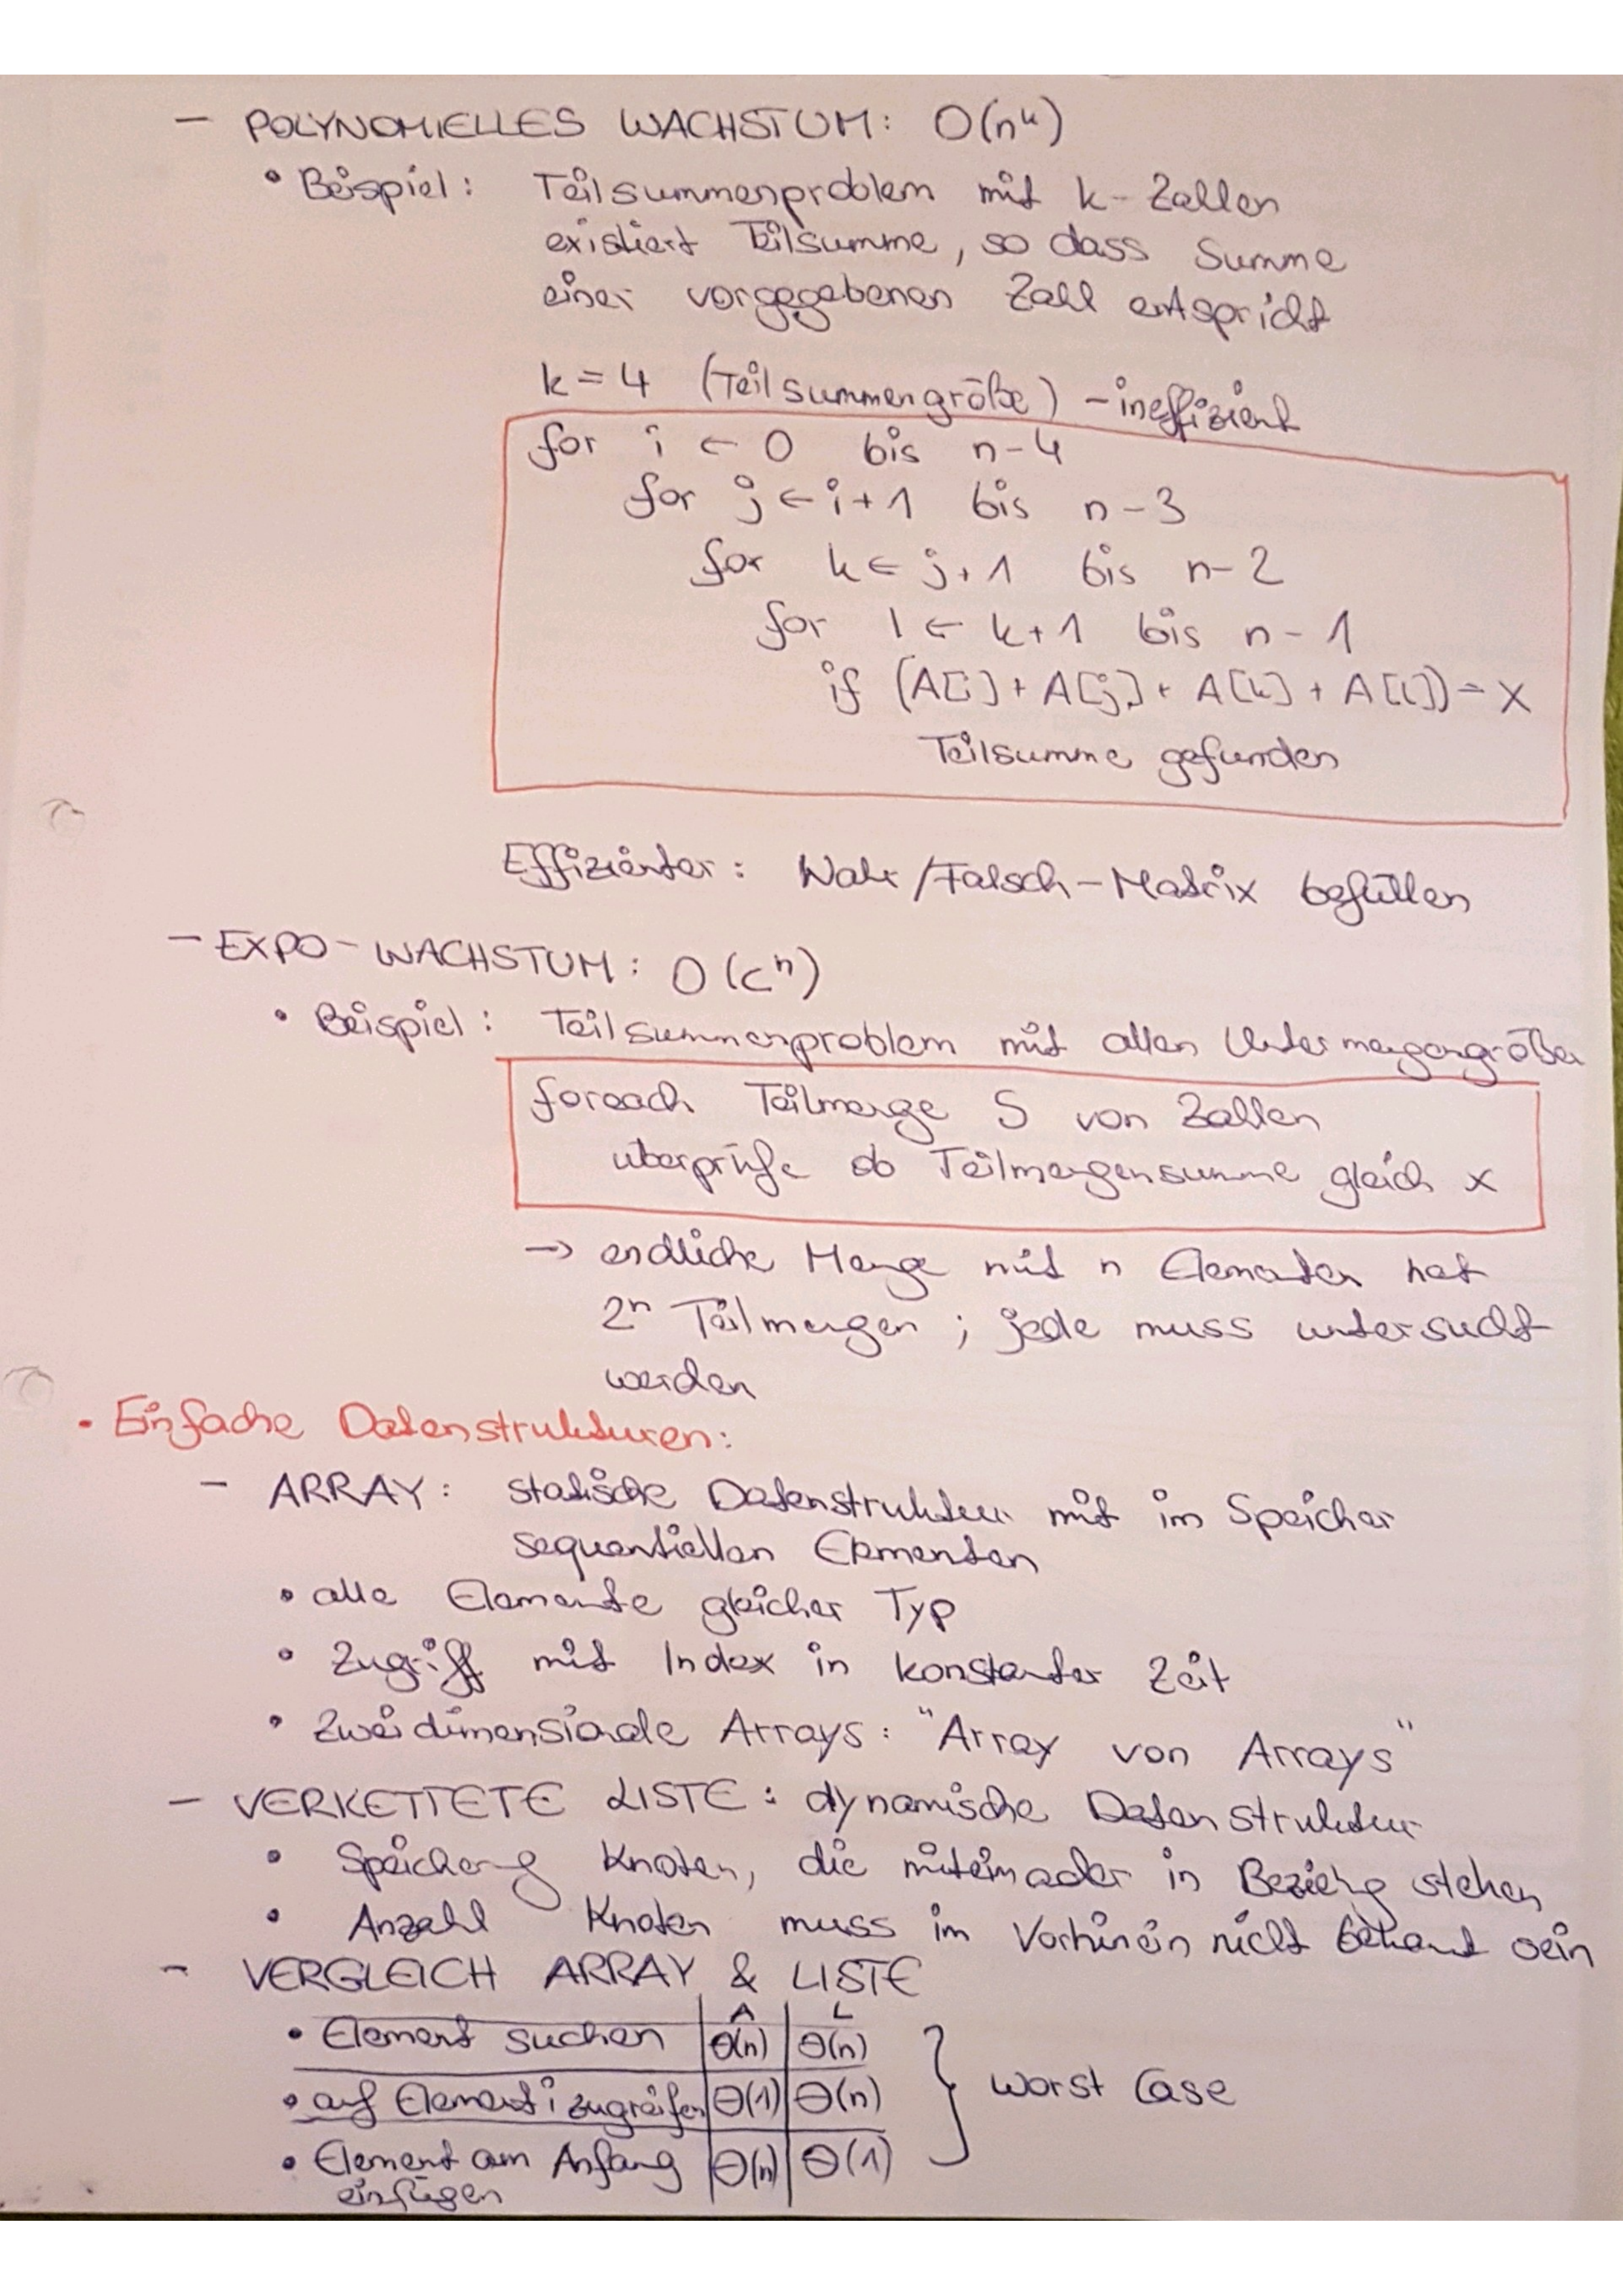 – POLYNOMIELLES WACHSTUM: O(nᵏ)
• Beispiel: Teilsummenproblem mit k-Zahlen
existiert Teilsumme, so dass Summe
einer vorgegebenen Zahl entspricht
k = 4 (Teilsummengröße) – ineffizient
for i ← 0 bis n-4
for j ← i+1 bis n-3
for k ← j+1 bis n-2
for l ← k+1 bis n-1
if (A[i] + A[j] + A[k] + A[l]) = x
Teilsumme gefunden
Effizienter: Wahr/Falsch-Matrix befüllen
– EXPO-WACHSTUM: O(cⁿ)
• Beispiel: Teilsummenproblem mit allen Untermengengrößen
foreach Teilmenge S von Zahlen
überprüfe ob Teilmengensumme gleich x
→ endliche Menge mit n Elementen hat
2ⁿ Teilmengen ; jede muss untersucht
werden
• Einfache Datenstrukturen:
– ARRAY: statische Datenstruktur mit im Speicher
sequentiellen Elementen
• alle Elemente gleicher Typ
• Zugriff mit Index in konstanter Zeit
• Zweidimensionale Arrays: "Array von Arrays"
– VERKETTETE LISTE: dynamische Datenstruktur
• Speicherung Knoten, die miteinander in Beziehg stehen
• Anzahl Knoten muss im Vorhinein nicht bekannt sein
– VERGLEICH ARRAY & LISTE
A L
• Element suchen Θ(n) Θ(n)
• auf Element i zugreifen Θ(1) Θ(n) } Worst Case
• Element am Anfang Θ(n) Θ(1)
einfügen